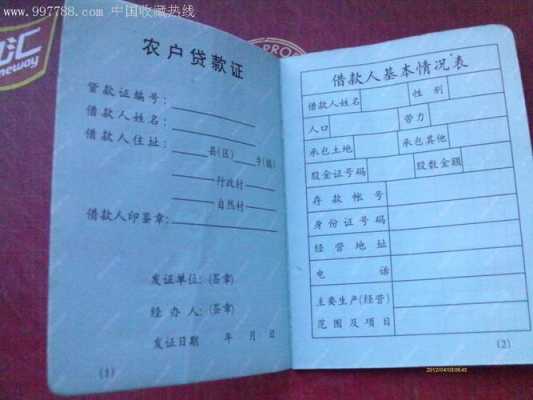 www.997788.com 中国收藏热线
汇
neway
PRO
农户贷款证
贷款证编号：
借款人姓名：
借款人住址：
县(区) 乡(镇)
行政村
自然村
借款人印签章：
发证单位：(签章)
经办人：(签章)
发证日期 年 月 日
(1)
借款人基本情况表
借款人姓名 性别
人口 劳力
承包土地 承包其他
股金证号码 股数金额
存款帐号
身份证号码
经营地址
电话
主要生产(经营)
范围及项目
(2)